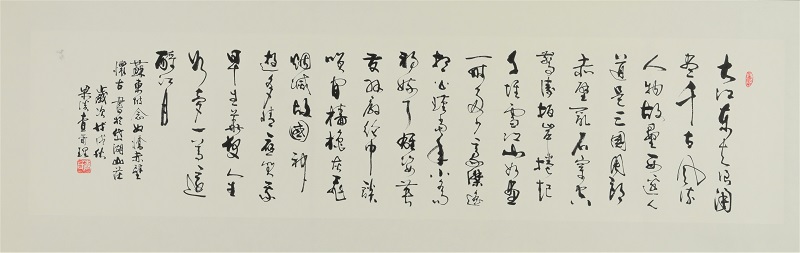 大江东去浪淘
盡千古風流
人物故壘西邊人
道是三國周郎
赤壁亂石穿空
驚濤拍岸捲起
千堆雪江山如畫
一時多少豪傑遙
想公瑾當年小喬
初嫁了雄姿英
發羽扇綸巾談
笑間檣櫓灰飛
烟滅故國神
遊多情應笑我
早生華髮人生
如夢一尊還
酹江月
蘇東坡念奴嬌赤壁
懷古書於湖山莊
歲次戌秋